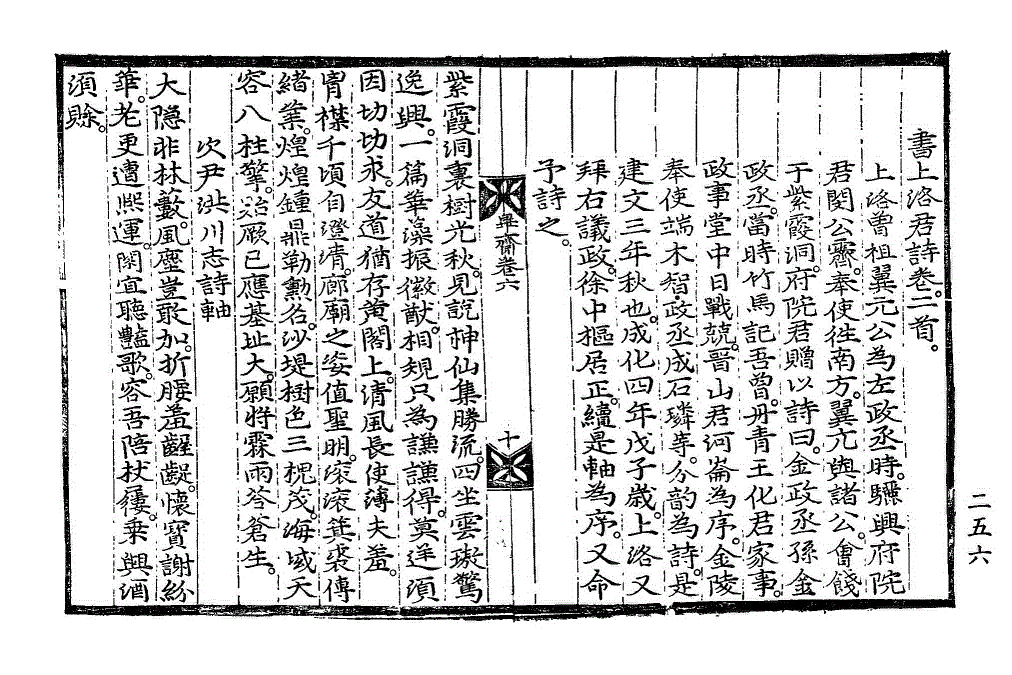 書上洛君詩卷。二首。
上洛曽祖翼元公為左政丞時。驪興府院
君閔公霽。奉使徃南方。翼元與諸公。會餞
于紫霞洞。府院君贈以詩曰。金政丞孫金
政丞。當時竹馬記吾曾。丹青王化君家事。
政事堂中日戰兢。晋山君河崙為序。金陵
奉使端木智。政丞成石璘等。分韵為詩。是
建文三年秋也。成化四年戊子歲。上洛又
拜右議政。徐中樞居正。續是軸為序。又命
予詩之。
畢齋卷六
十
紫霞洞裏樹光秋。見說神仙集勝流。四坐雲璈驚
逸興。一篇華藻振徽猷。相規只為謙謙得。莫逆須
因切切求。友道猶存黄閣上。清風長使薄夫羞。
胷襟千頃自澄清。廊廟之姿値聖明。滚滚箕裘傳
緒業。煌煌鍾鼎勒勲名。沙堤樹色三槐茂。海域天
容八柱擎。貽厥已應基址大。願將霖雨答蒼生。
次尹洪川志詩軸
大隠非林藪。風塵豈敢加。折腰羞齷齪。懷寳謝紛
華。老更遭熙運。閑宜聽艶歌。容吾陪杖屨。乗興酒
須賖。
二五六